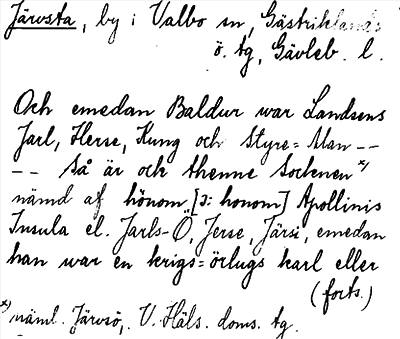 Järvsta, by i Valbo sn, Gästriklands
ö. tg, Gävleb. l.
Och emedan Baldur war Landsens
Jarl, Herse, Kung och Styre=Man --
-- Så är och thenne Socknen x)
nämd af hönom [ɔ: honom] Apollinis
Insula el. Jarls-Ö, Jerse, Järsi, emedan
han war en krigs=örlugs karl eller
(forts.)
x) näml. Järvsö, V. Häls. doms. tg.